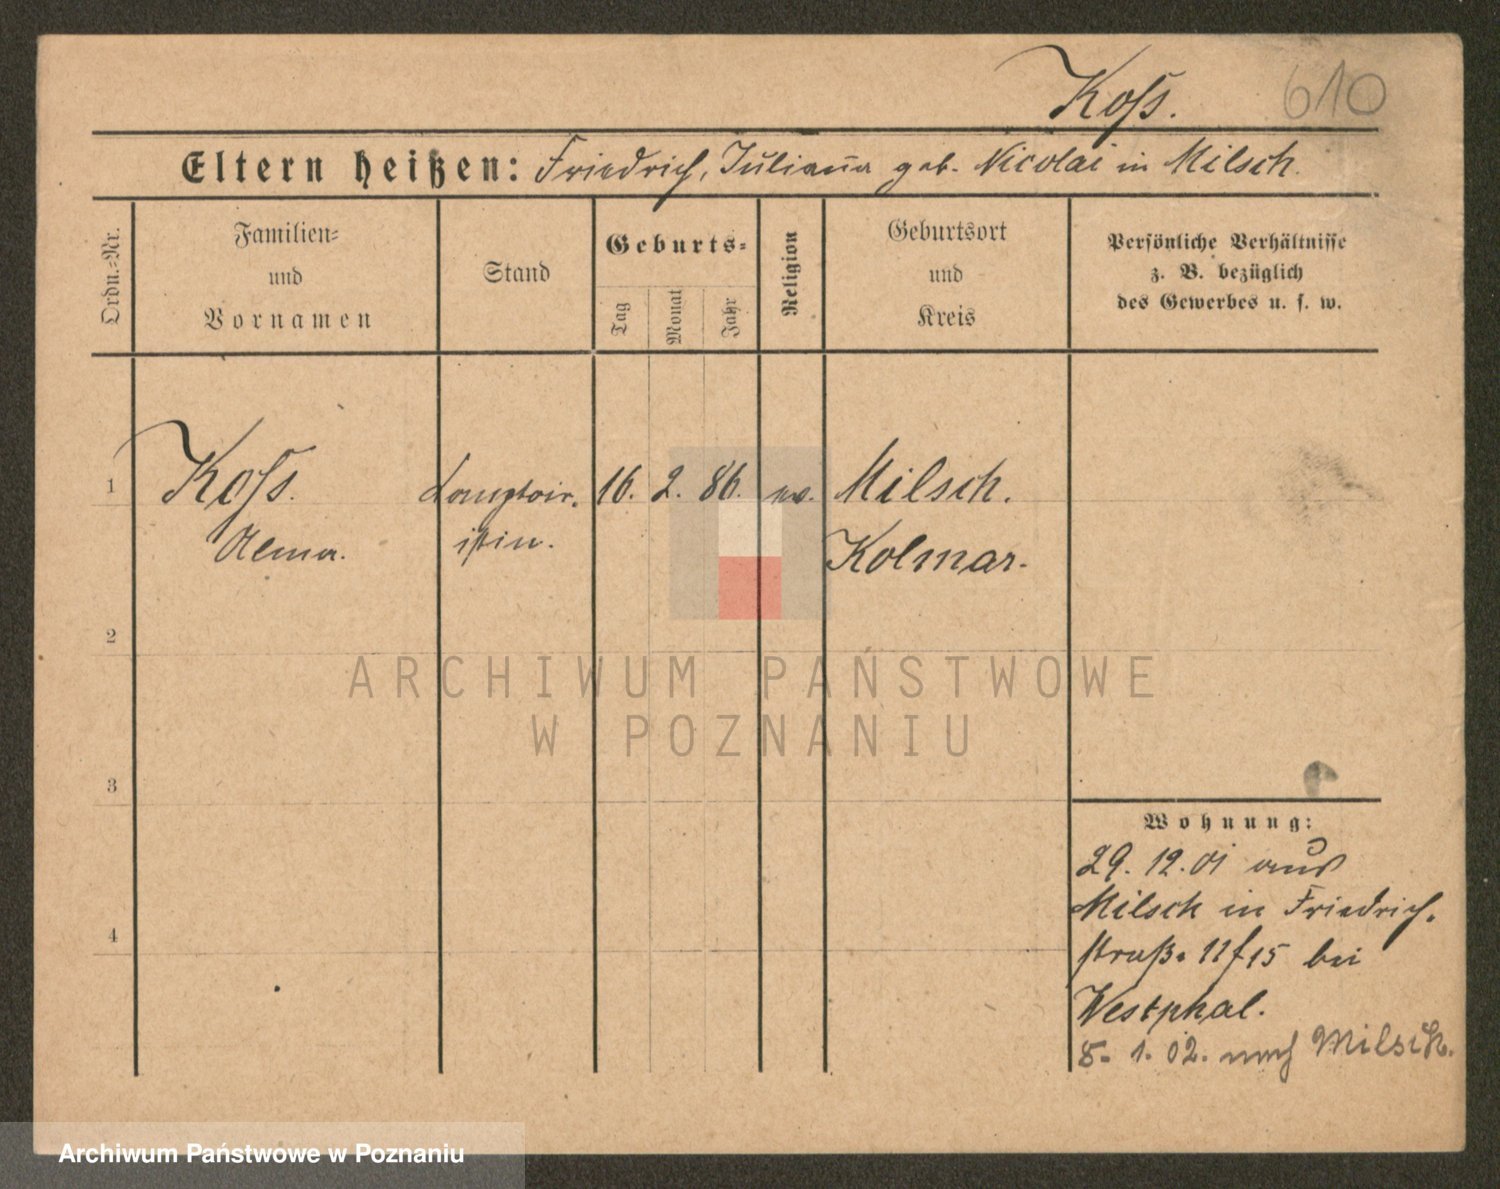 Koſs.
610
Eltern heißen: Friedrich, Juliana geb. Nicolai in Milsch.
Ordn.-Nr.
Familien-
und
Vornamen
Stand
Geburts-
Tag
Monat
Jahr
Religion
Geburtsort
und
Kreis
Persönliche Verhältnisse
z. B. bezüglich
des Gewerbes u. s. w.
1
Koſs. Comptoir. 16. 2. 86. ev. Milsch.
Alma. istin. Kolmar.
2
ARCHIWUM PAŃSTWOWE
W POZNANIU
3
Wohnung:
29. 12. 01 aus
Milsch in Friedrich.
straße 11 15 bei
4
Westphal.
8. 1. 02. nach Milsch.
Archiwum Państwowe w Poznaniu